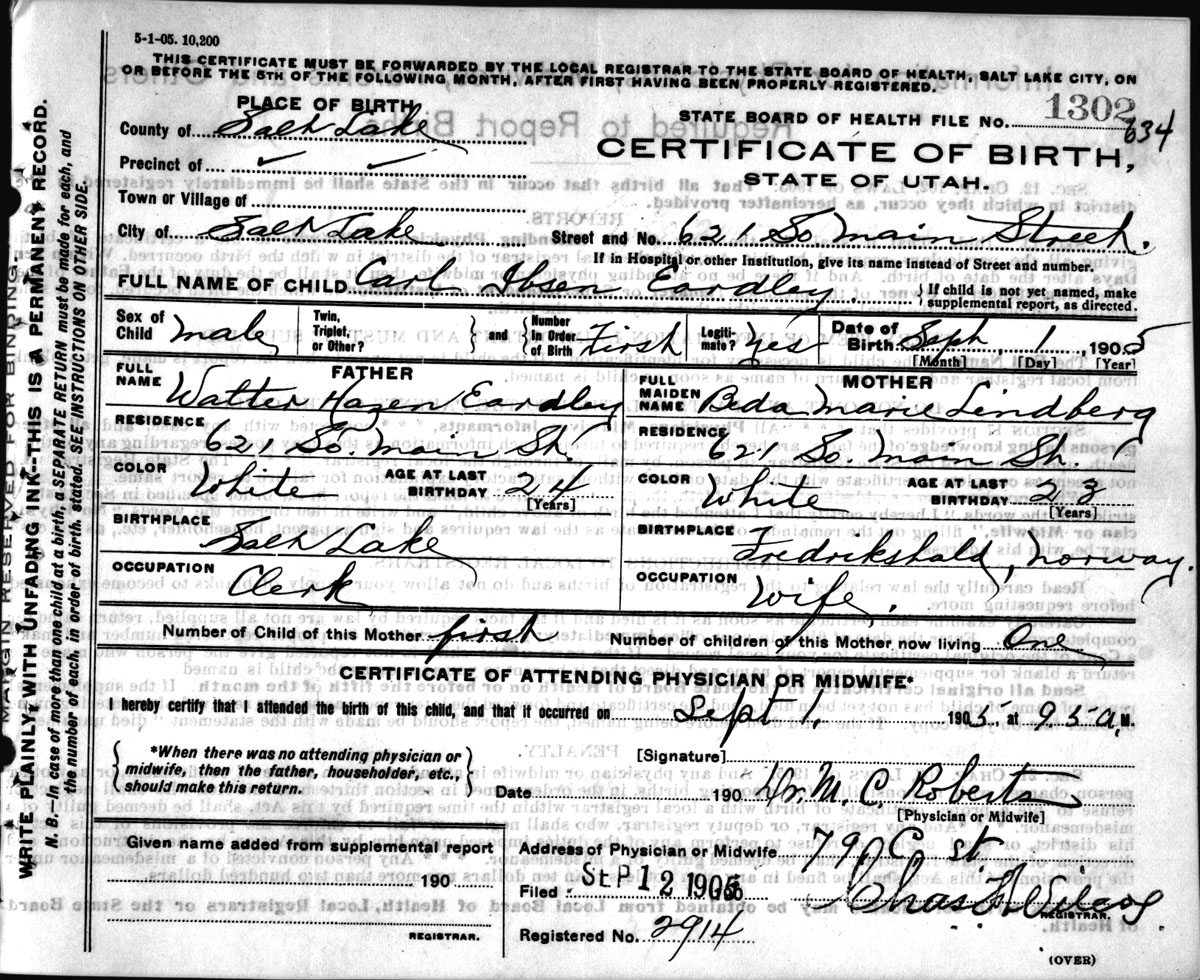 5-1-05. 10,200
THIS CERTIFICATE MUST BE FORWARDED BY THE LOCAL REGISTRAR TO THE STATE BOARD OF HEALTH, SALT LAKE CITY, ON
OR BEFORE THE 5TH OF THE FOLLOWING MONTH, AFTER FIRST HAVING BEEN PROPERLY REGISTERED.
MARGIN RESERVED FOR BINDING.
WRITE PLAINLY, WITH UNFADING INK--THIS IS A PERMANENT RECORD.
N. B.—In case of more than one child at a birth, a SEPARATE RETURN must be made for each, and
the number of each, in order of birth, stated. SEE INSTRUCTIONS ON OTHER SIDE.
PLACE OF BIRTH
STATE BOARD OF HEALTH FILE NO. 1302
634
County of Salt Lake
CERTIFICATE OF BIRTH,
STATE OF UTAH.
Precinct of ✓ ✓
Town or Village of
City of Salt Lake Street and No. 621 So Main Street.
If in Hospital or other Institution, give its name instead of Street and number.
FULL NAME OF CHILD Carl Ibsen Eardley. { If child is not yet named, make
supplemental report, as directed.
Sex of Child Male Twin, Triplet, or Other? } and { Number in Order of Birth First Legiti-mate? Yes Date of Birth Sept, 1, 1905
[Month] [Day] [Year]
FATHER MOTHER
FULL NAME Walter Hazen Eardley FULL MAIDEN NAME Beda Marie Lindberg
RESIDENCE 621 So. Main St. RESIDENCE 621 So. Main St.
COLOR White AGE AT LAST BIRTHDAY 24 [Years] COLOR White AGE AT LAST BIRTHDAY 23 [Years]
BIRTHPLACE Salt Lake BIRTHPLACE Fredrikshald, Norway.
OCCUPATION Clerk OCCUPATION Wife.
Number of Child of this Mother first Number of children of this Mother now living One
CERTIFICATE OF ATTENDING PHYSICIAN OR MIDWIFE*
I hereby certify that I attended the birth of this child, and that it occurred on Sept 1, 1905, at 9 5 a, M.
{ *When there was no attending physician or
midwife, then the father, householder, etc.,
should make this return. }
[Signature]
Date 190 Dr. M. C. Roberts
[Physician or Midwife]
Given name added from supplemental report
190
REGISTRAR.
Address of Physician or Midwife. 79 C st.
Filed SEP 12 1905 Chas. F. Wilcox
REGISTRAR.
Registered No. 2914
(OVER)